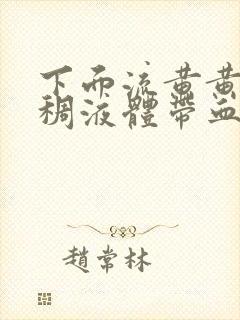 下而流黄黄
稠液體帶血
趙常林